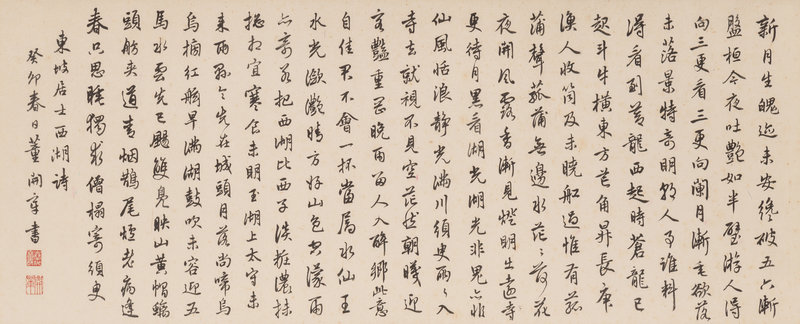 新月生魄迹未安纔破五六漸
盤桓今夜吐艷如半璧游人得
向三更看三更向闌月漸垂欲落
未落景特奇明朝人事誰料
得看到蒼龍西起時蒼龍已
起斗牛橫東方芒角昇長庚
漁人收筒及未曉船過惟有菰
蒲聲菰蒲無邊水茫茫荷花
夜開風露香漸見燈明出遠寺
更待月黑看湖光湖光非鬼亦非
仙風恬浪靜光滿川須臾兩兩入
寺去就視不見空茫然朝曦迎
客豔重岡晚雨留人入醉鄉此意
自佳君不會一杯當屬水仙王
水光瀲灧晴方好山色空濛雨
亦奇若把西湖比西子淡粧濃抹
總相宜寒食未明至湖上太守未
來兩縣令先在城頭月落尚啼烏
烏榜紅舷早滿湖鼓吹未容迎五
馬水雲先已颺雙鳧映山黃帽螭
頭舫夾道青烟鵲尾爐老病逢
春只思睡獨求僧榻寄須臾
東坡居士西湖詩
癸卯春日董開章書